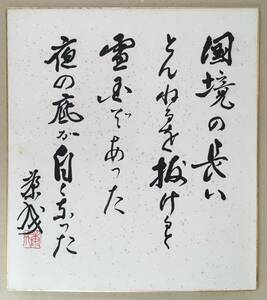 国境の長い
とんねるを抜けると
雪国であった
夜の底が白くなった
康成